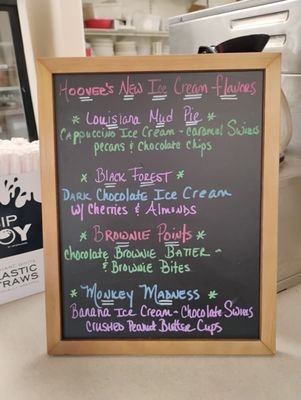 Hoovee's New Ice Cream Flavors
* Louisiana Mud Pie *
Cappuccino Ice Cream - Caramel Swirls
pecans & Chocolate Chips
* Black Forest *
Dark Chocolate Ice Cream
w/ Cherries & Almonds
* Brownie Points *
Chocolate Brownie Batter -
& Brownie Bites
* Monkey Madness *
Banana Ice Cream - Chocolate Swirls
Crushed Peanut Butter Cups
STRAWS